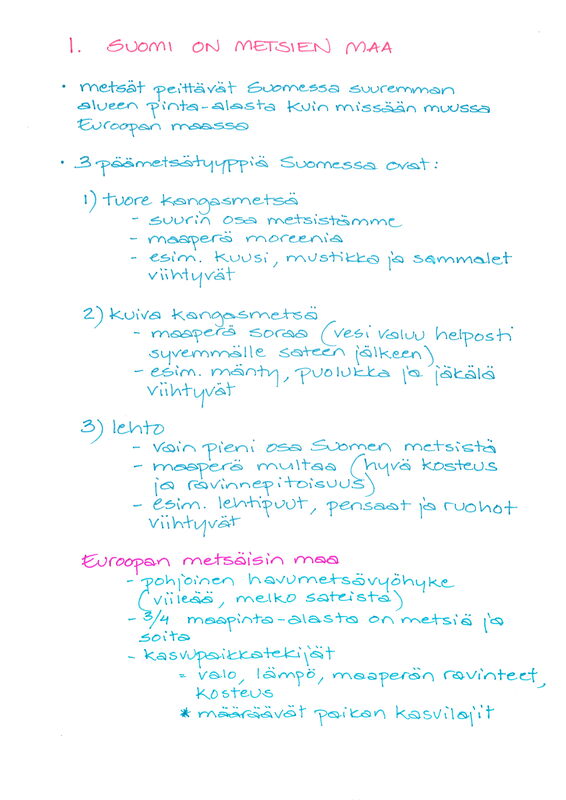 1. SUOMI ON METSIEN MAA
• metsät peittävät Suomessa suuremman
alueen pinta-alasta kuin missään muussa
Euroopan maassa
• 3 päämetsätyyppiä Suomessa ovat:
1) tuore kangasmetsä
- suurin osa metsistämme
- maaperä moreenia
- esim. kuusi, mustikka ja sammalet
viihtyvät
2) kuiva kangasmetsä
- maaperä soraa (vesi valuu helposti
syvemmälle sateen jälkeen)
- esim. mänty, puolukka ja jäkälä
viihtyvät
3) lehto
- vain pieni osa Suomen metsistä
- maaperä multaa (hyvä kosteus
ja ravinnepitoisuus)
- esim. lehtipuut, pensaat ja ruohot
viihtyvät
Euroopan metsäisin maa
- pohjoinen havumetsävyöhyke
(viileää, melko sateista)
- 3/4 maapinta-alasta on metsiä ja
soita
- kasvupaikkatekijät
= valo, lämpö, maaperän ravinteet,
kosteus
* määräävät paikan kasvilajit